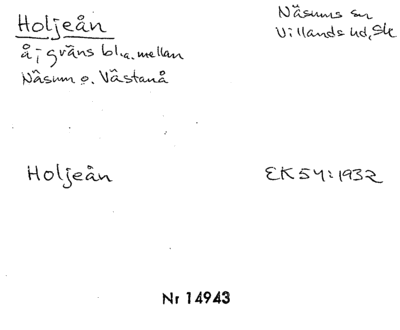 Holjeån
Näsums sn
Villands hd, Sk
å; gräns bl.a. mellan
Näsum o. Västanå
Holjeån
EK 54:1932
Nr 14943